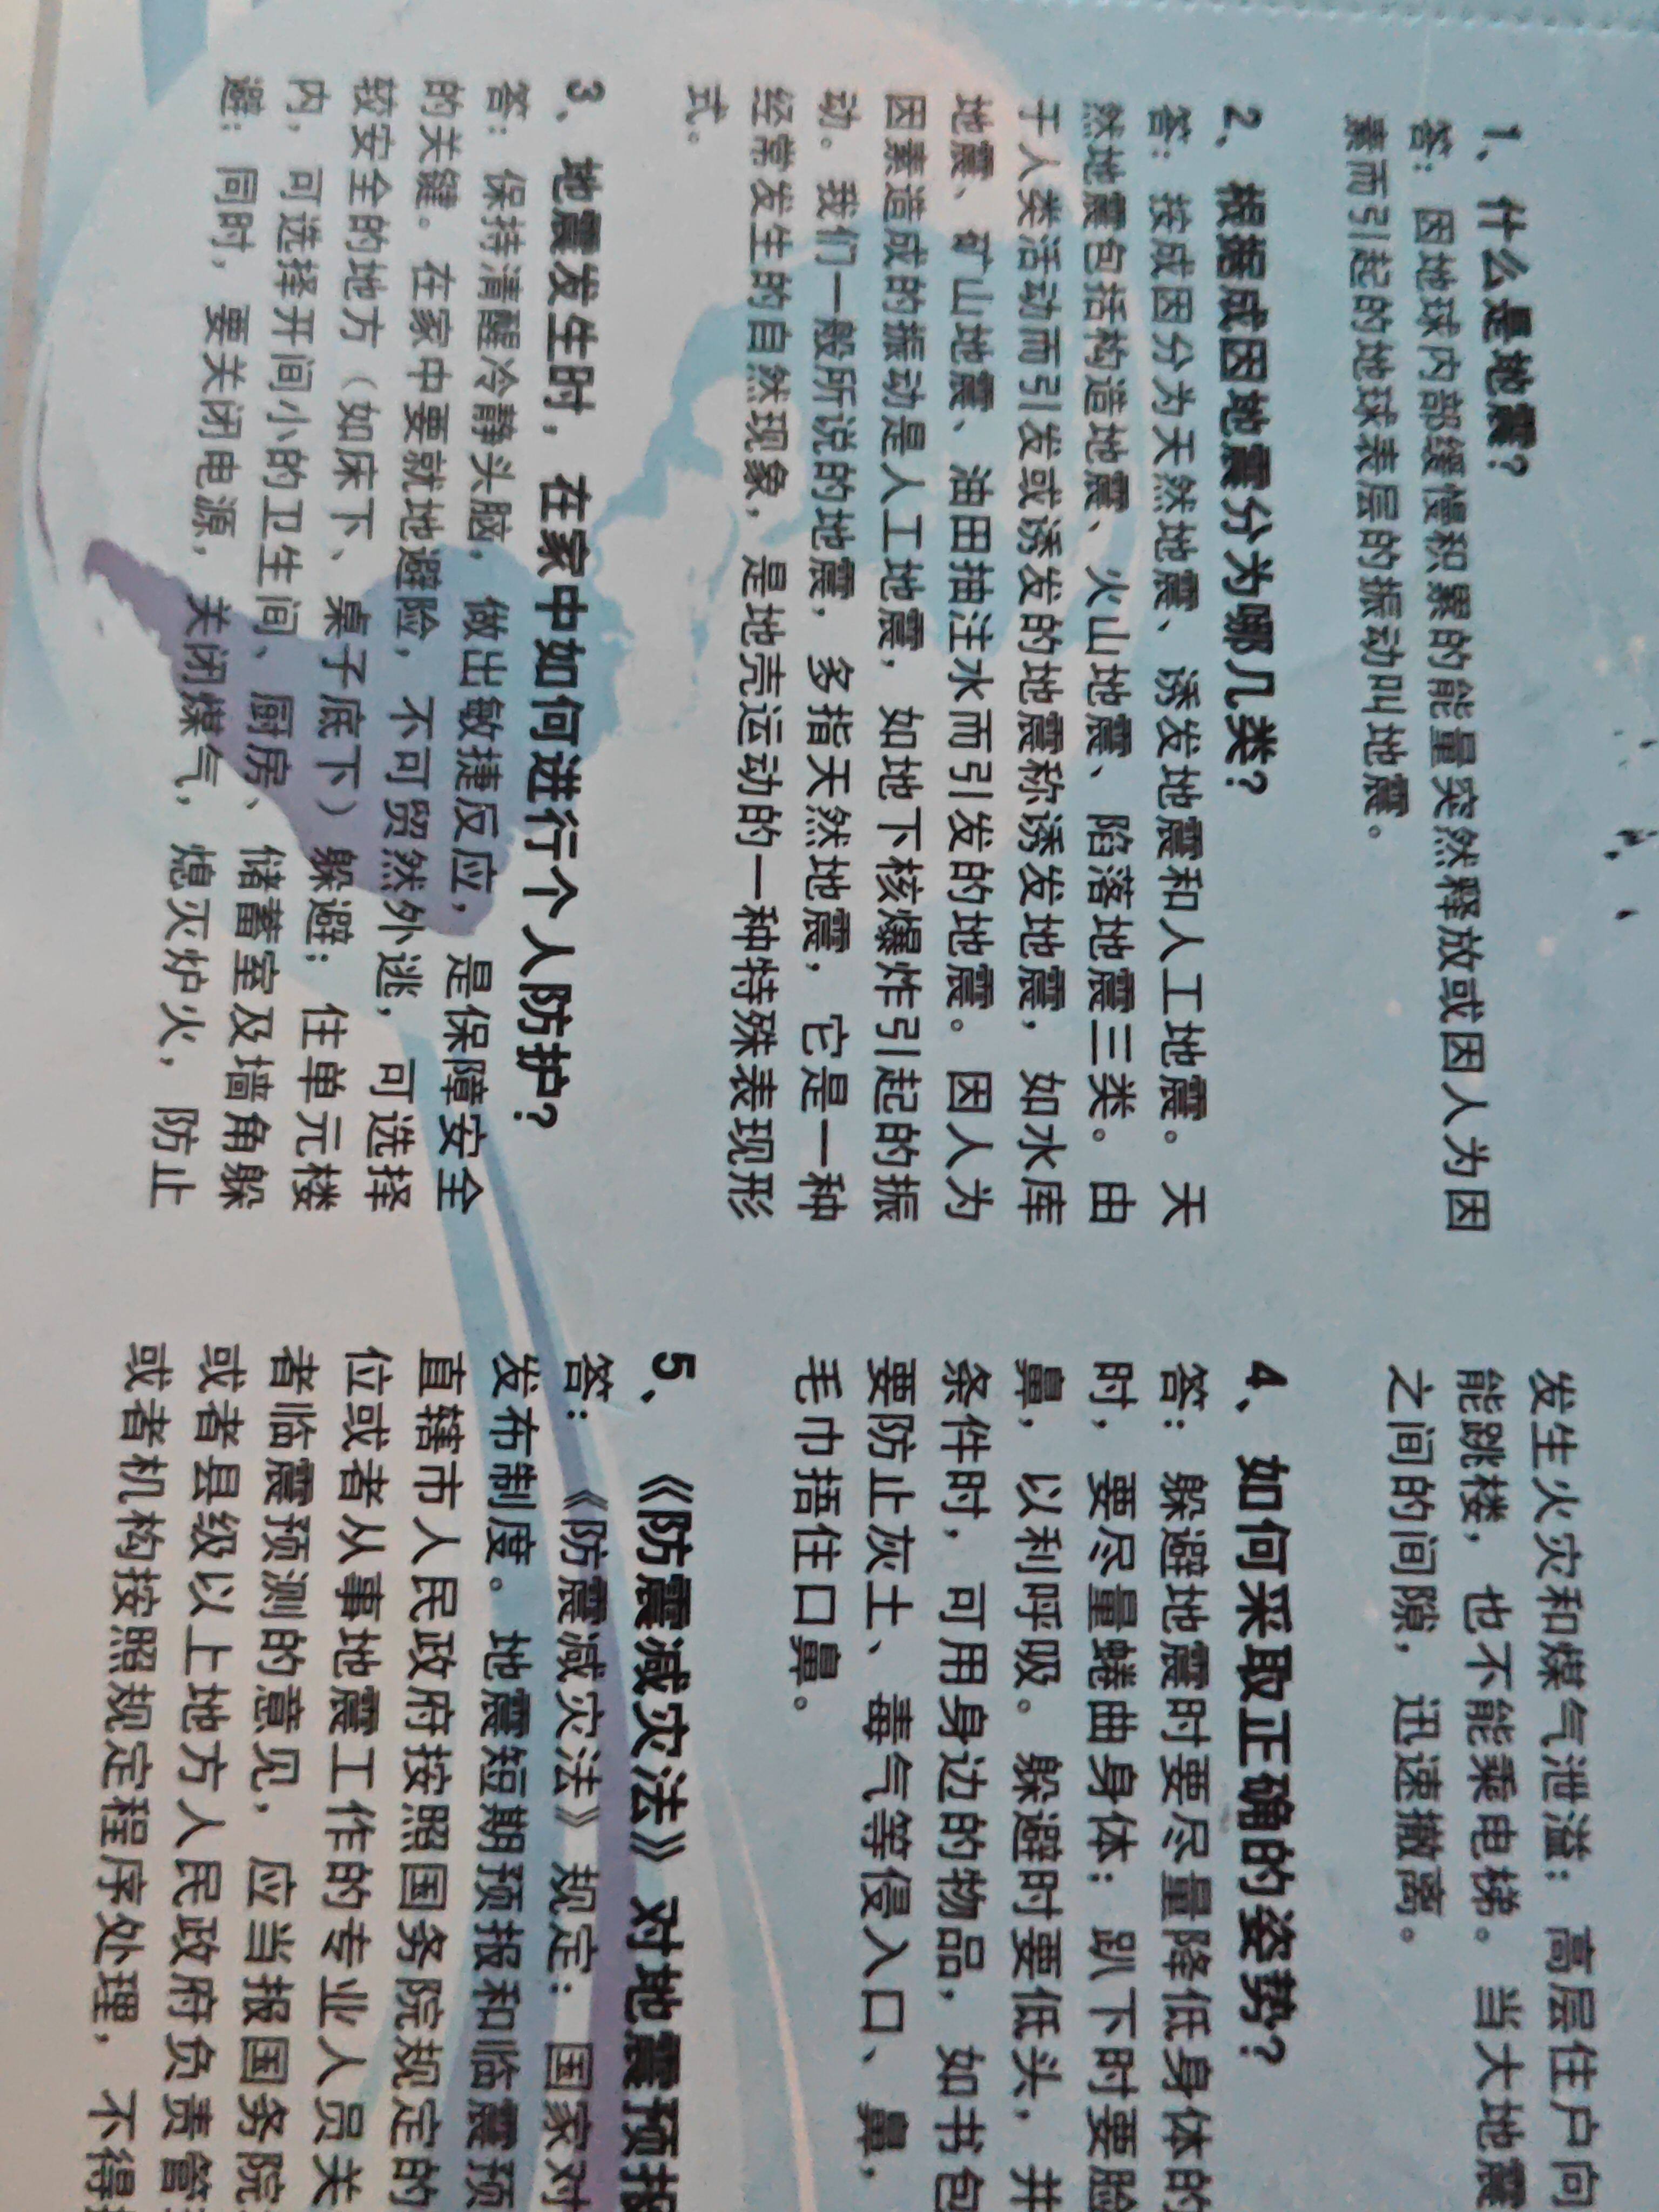 1、什么是地震？
答：因地球内部缓慢积累的能量突然释放或因人为因
素而引起的地球表层的振动叫地震。
2、根据成因地震分为哪几类？
答：按成因分为天然地震、诱发地震和人工地震。天
然地震包括构造地震、火山地震、陷落地震三类。由
于人类活动而引发或诱发的地震称诱发地震，如水库
地震、矿山地震、油田抽注水而引发的地震。因人为
因素造成的振动是人工地震，如地下核爆炸引起的振
动。我们一般所说的地震，多指天然地震，它是一种
经常发生的自然现象，是地壳运动的一种特殊表现形
式。
3、地震发生时，在家中如何进行个人防护？
答：保持清醒冷静头脑，做出敏捷反应，是保障安全
的关键。在家中要就地避险，不可贸然外逃，可选择
较安全的地方（如床下、桌子底下）躲避；住单元楼
内，可选择开间小的卫生间、厨房、储蓄室及墙角躲
避；同时，要关闭电源，关闭煤气，熄灭炉火，防止
发生火灾和煤气泄溢；高层住户向
能跳楼，也不能乘电梯。当大地震
之间的间隙，迅速撤离。
4、如何采取正确的姿势？
答：躲避地震时要尽量降低身体的
时，要尽量蜷曲身体；趴下时要脸
鼻，以利呼吸。躲避时要低头，并
条件时，可用身边的物品，如书包
要防止灰土、毒气等侵入口、鼻，
毛巾捂住口鼻。
5、《防震减灾法》对地震预报
答：《防震减灾法》规定：国家对
发布制度。地震短期预报和临震预
直辖市人民政府按照国务院规定的
位或者从事地震工作的专业人员关
者临震预测的意见，应当报国务院
或者县级以上地方人民政府负责管
或者机构按照规定程序处理，不得